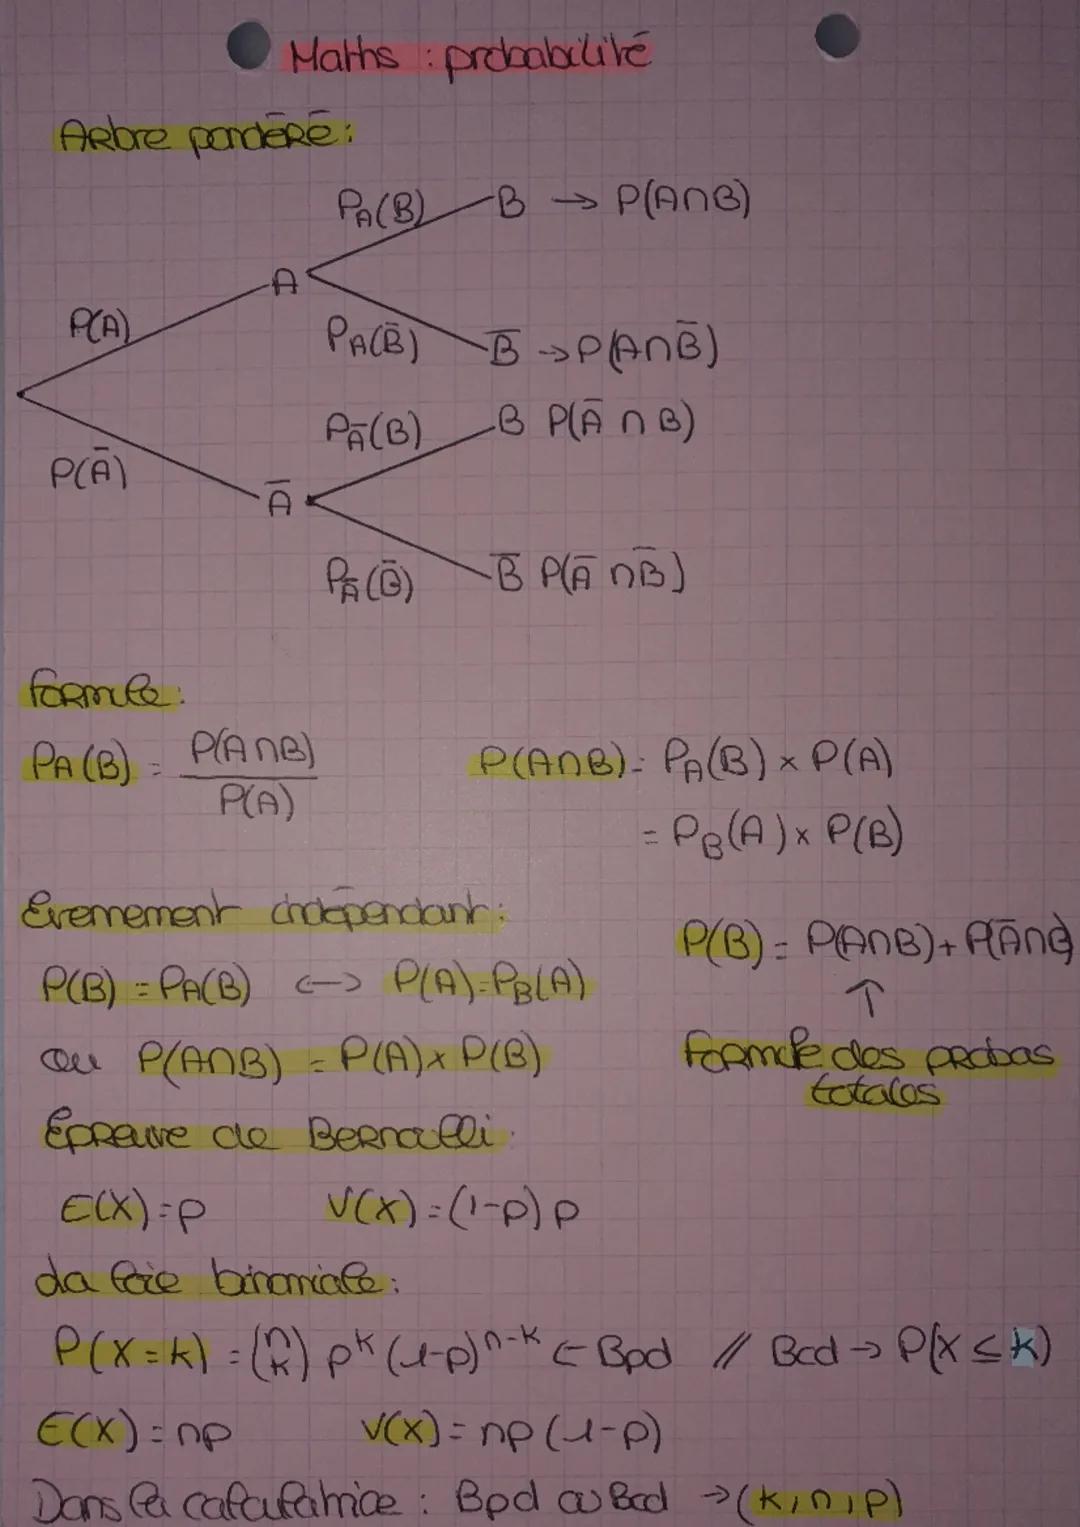 Maths : probabilité
Arbre pondéré :
P_A(B) B → P(A∩B)
A
P(A)
P_A(B̄) B̄ → P(A∩B̄)
P_Ā(B) B P(Ā ∩ B)
P(Ā)
Ā
P_Ā(B̄) B̄ P(Ā ∩ B̄)
formule :
P_A(B) = P(A∩B) / P(A)
P(A∩B) = P_A(B) × P(A)
= P_B(A) × P(B)
Evenement indépendant :
P(B) = P_A(B) ↔ P(A) = P_B(A)
ou P(A∩B) = P(A) × P(B)
P(B) = P(A∩B) + P(Ā∩B)
↑
formule des probas
totales
Épreuve de Bernoulli :
E(X) = p V(X) = (1-p) p
La loie binomiale :
P(X=k) = (n k) p^k (1-p)^(n-k) ← Bpd // Bcd → P(X ≤ k)
E(X) = np V(X) = np (1-p)
Dans la calculatrice : Bpd ou Bcd → (k, n, p)